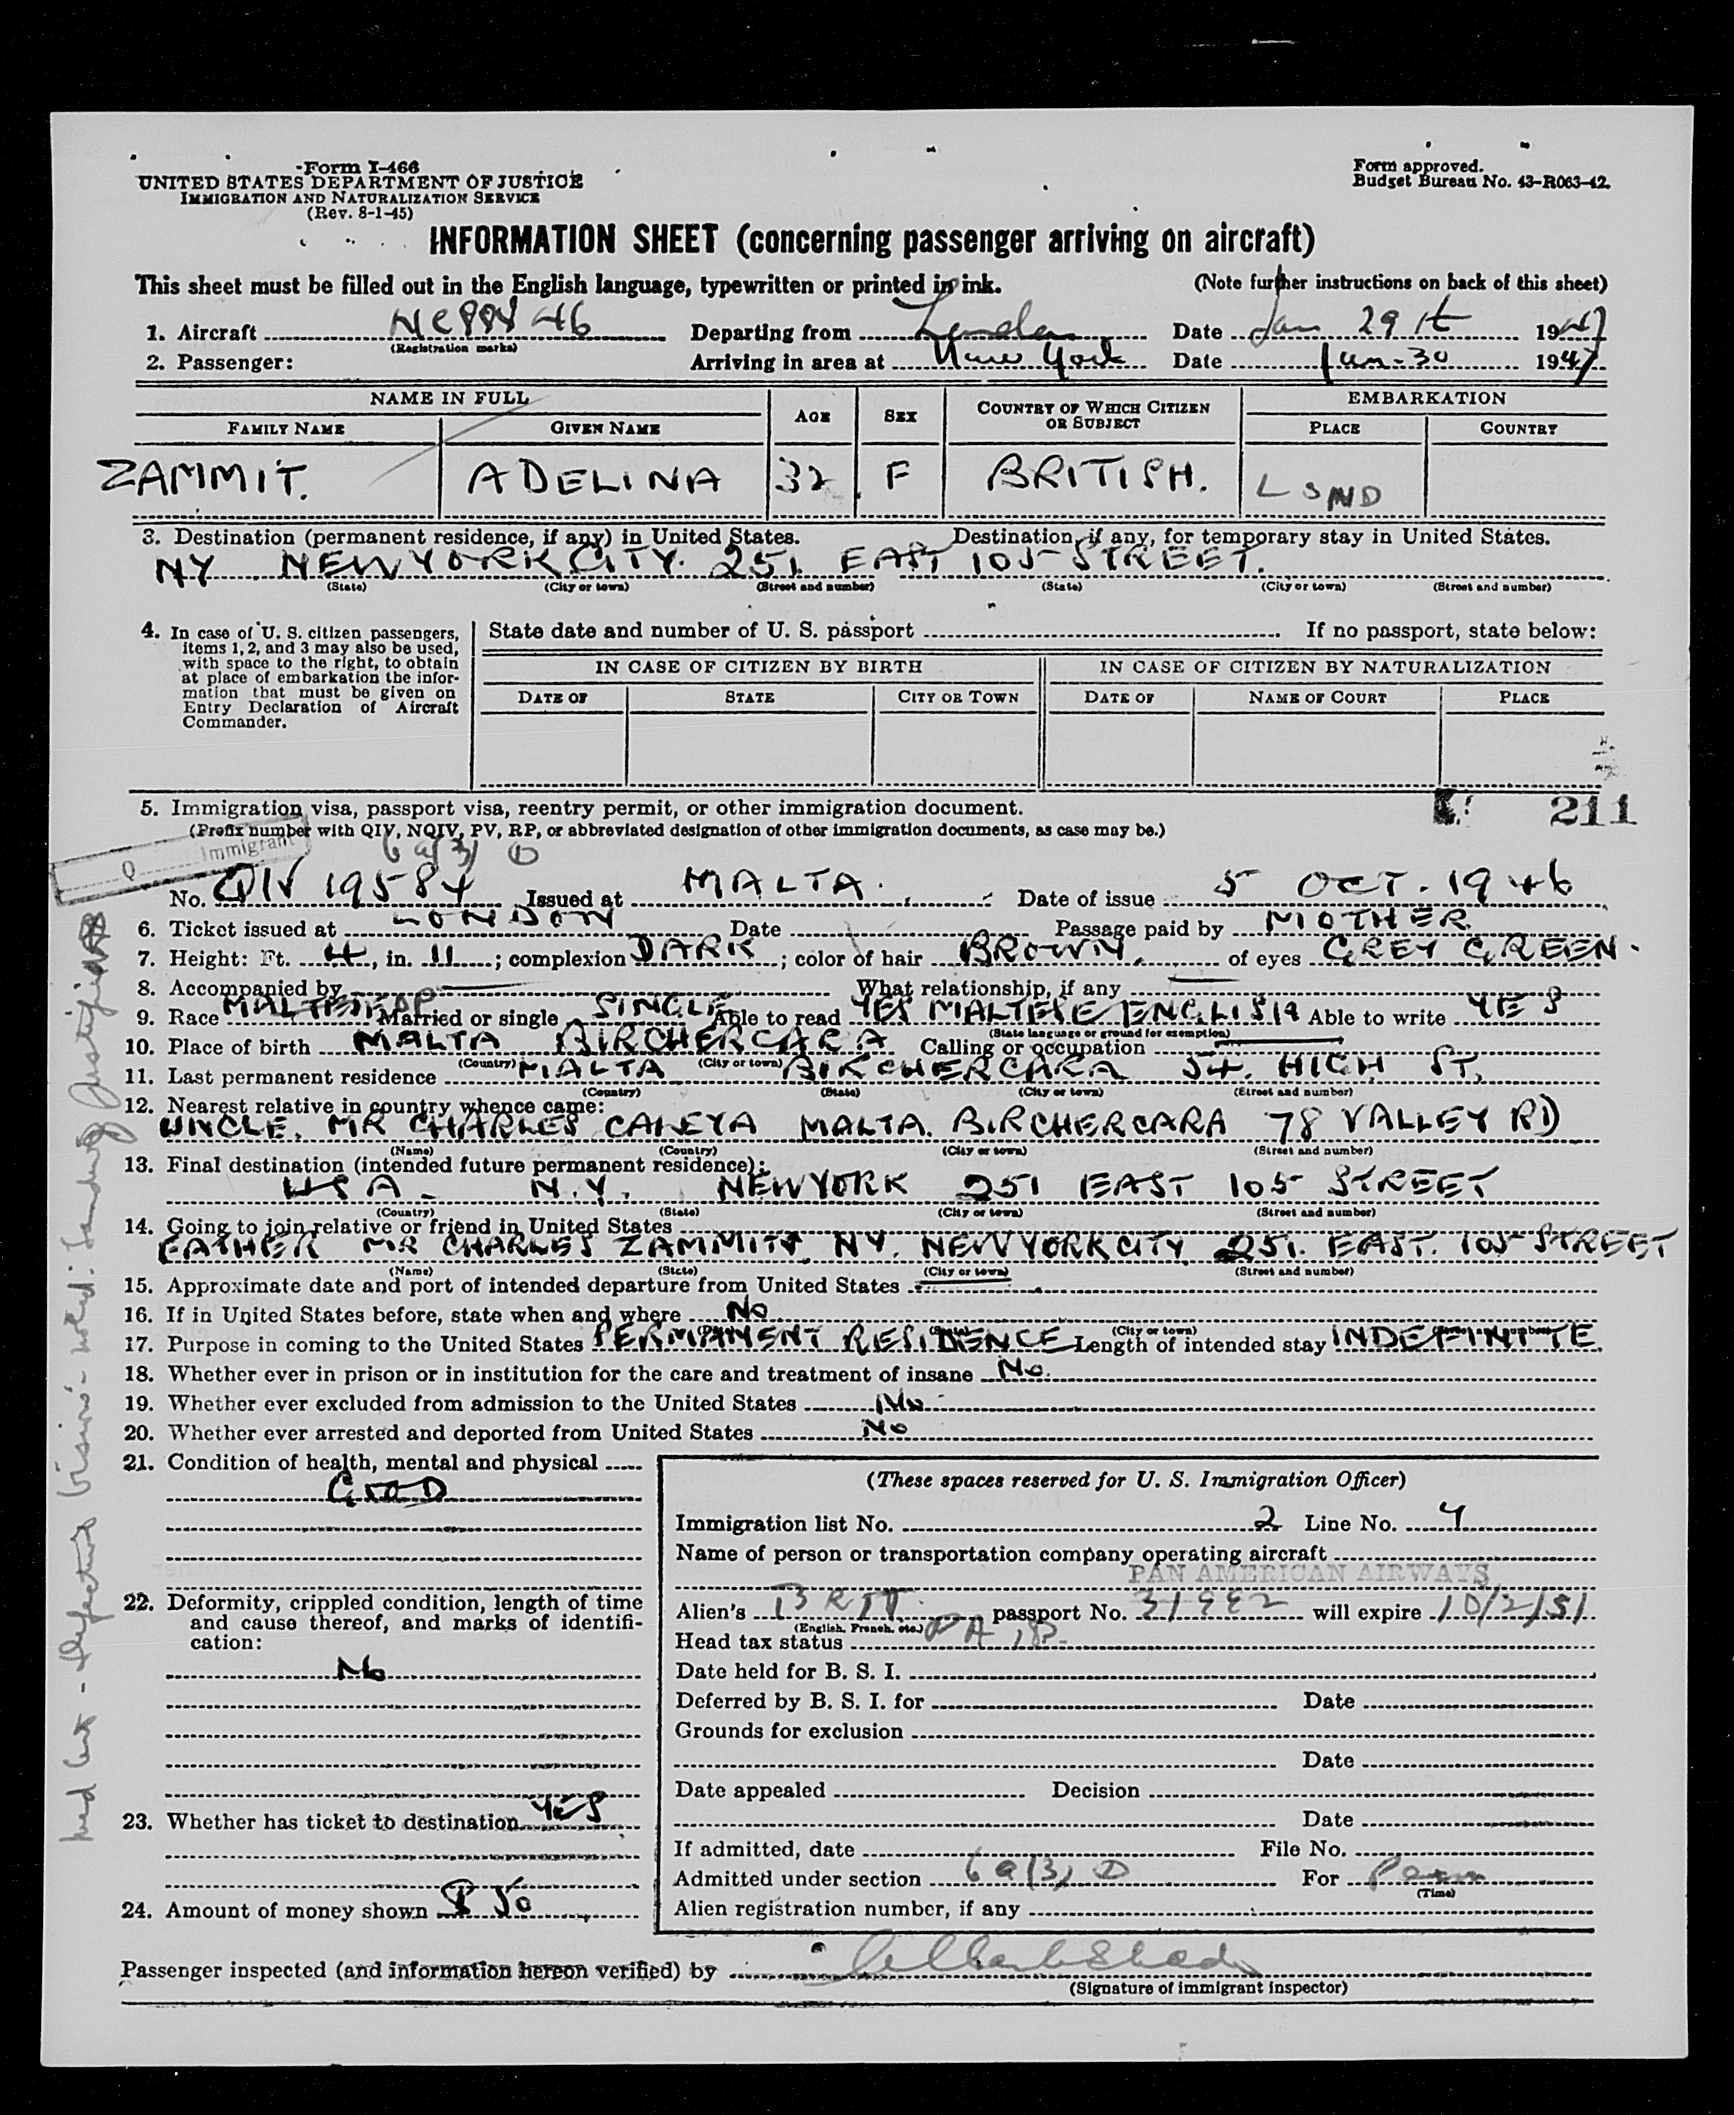 Form I-466
UNITED STATES DEPARTMENT OF JUSTICE
IMMIGRATION AND NATURALIZATION SERVICE
(Rev. 8-1-45)
Form approved.
Budget Bureau No. 43-R063-42.
INFORMATION SHEET (concerning passenger arriving on aircraft)
This sheet must be filled out in the English language, typewritten or printed in ink. (Note further instructions on back of this sheet)
1. Aircraft (Registration marks) Departing from London Date Jan 29 1947
2. Passenger: Arriving in area at New York Date Jan-30 1947
NAME IN FULL AGE SEX COUNTRY OF WHICH CITIZEN OR SUBJECT EMBARKATION
FAMILY NAME GIVEN NAME PLACE COUNTRY
ZAMMIT. ADELINA 32 F BRITISH. LOND
3. Destination (permanent residence, if any) in United States. Destination, if any, for temporary stay in United States.
NY NEW YORK CITY. 251 EAST 105 STREET.
(State) (City or town) (Street and number) (State) (City or town) (Street and number)
4. In case of U. S. citizen passengers, items 1, 2, and 3 may also be used, with space to the right, to obtain at place of embarkation the information that must be given on Entry Declaration of Aircraft Commander.
State date and number of U. S. passport If no passport, state below:
IN CASE OF CITIZEN BY BIRTH IN CASE OF CITIZEN BY NATURALIZATION
DATE OF STATE CITY OR TOWN DATE OF NAME OF COURT PLACE
5. Immigration visa, passport visa, reentry permit, or other immigration document. 211
(Prefix number with QIV, NQIV, PV, RP, or abbreviated designation of other immigration documents, as case may be.)
Q Immigrant 6 a(3) D
No. QIV 19584 Issued at MALTA. Date of issue 5 OCT. 1946
6. Ticket issued at LONDON Date Passage paid by MOTHER
7. Height: Ft. 4, in. 11; complexion DARK; color of hair BROWN, of eyes GREY GREEN.
8. Accompanied by — What relationship, if any —
9. Race MALTESE Married or single SINGLE Able to read YES MALTESE ENGLISH Able to write YES
(State language or ground for exemption)
10. Place of birth MALTA BIRCHERCARA Calling or occupation —
(Country) (City or town)
11. Last permanent residence MALTA BIRCHERCARA 54. HIGH ST.
(Country) (State) (City or town) (Street and number)
12. Nearest relative in country whence came:
UNCLE. MR CHARLES MALTA. BIRCHERCARA 78 VALLEY RD
(Name) (Country) (City or town) (Street and number)
13. Final destination (intended future permanent residence):
USA - N.Y. NEW YORK 251 EAST 105 STREET
(Country) (State) (City or town) (Street and number)
14. Going to join relative or friend in United States
FATHER MR CHARLES ZAMMIT NY. NEW YORK CITY 251. EAST. 105 STREET
(Name) (State) (City or town) (Street and number)
15. Approximate date and port of intended departure from United States —
16. If in United States before, state when and where No
(City or town)
17. Purpose in coming to the United States PERMANENT RESIDENCE Length of intended stay INDEFINITE.
18. Whether ever in prison or in institution for the care and treatment of insane No.
19. Whether ever excluded from admission to the United States No
20. Whether ever arrested and deported from United States No
21. Condition of health, mental and physical
GOOD
22. Deformity, crippled condition, length of time and cause thereof, and marks of identification:
No
23. Whether has ticket to destination YES
24. Amount of money shown $ 50
(These spaces reserved for U. S. Immigration Officer)
Immigration list No. 2 Line No. 4
Name of person or transportation company operating aircraft
PAN AMERICAN AIRWAYS
Alien's BRIT. passport No. 31882 will expire 10/2/51
(English, French, etc.)
Head tax status
Date held for B. S. I.
Deferred by B. S. I. for Date
Grounds for exclusion
Date
Date appealed Decision
Date
If admitted, date File No.
Admitted under section 6 a(3) D For Perm
(Time)
Alien registration number, if any
Passenger inspected (and information hereon verified) by
(Signature of immigrant inspector)
med cert - defective vision - noted: